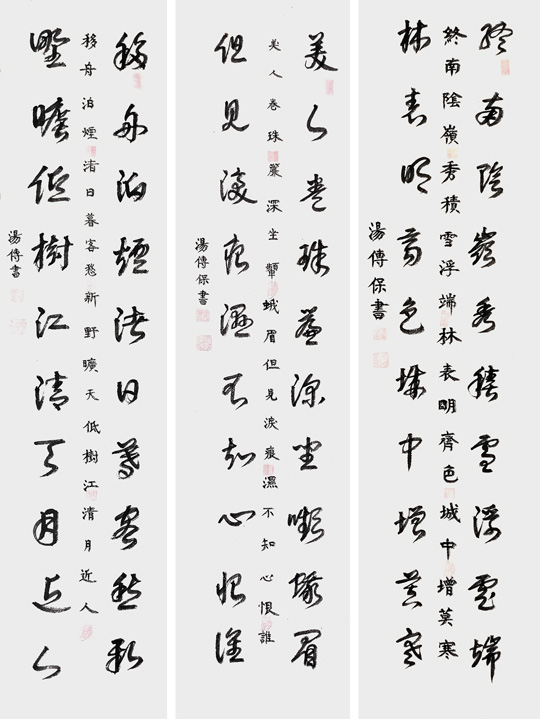 終南陰嶺秀積雪浮雲端
終南陰嶺秀積雪浮端林表明齊色城中增莫寒
林表明霽色城中增莫寒
湯傳保書
美人卷珠簾深坐嚬蛾眉
美人卷珠簾深坐顰蛾眉但見淚痕濕不知心恨誰
但見淚痕濕不知心恨誰
湯傳保書
移舟泊煙渚日暮客愁新
移舟泊煙渚日暮客愁新野曠天低樹江清月近人
野曠低樹江清了月近人
湯傳書